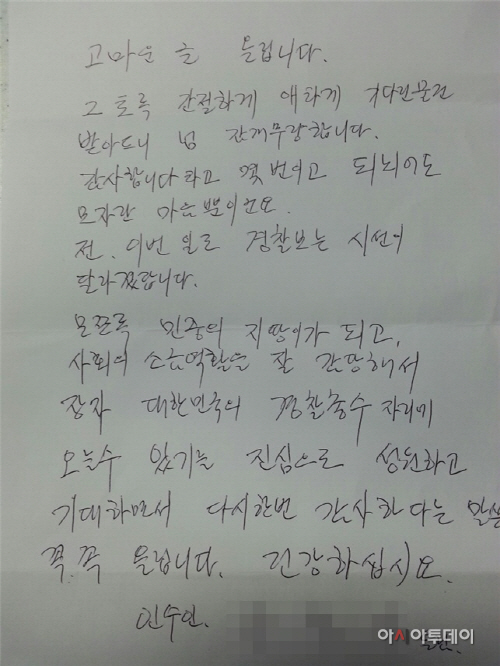 고마운 글 올립니다.
그토록 간절하게 애타게 기다린물건
받아드니 넘 감개무량합니다.
감사합니다라고 몇번이고 되뇌여도
모자란 마음뿐이네요.
전. 이번 일로 경찰보는 시선이
달라졌답니다.
모쪼록 민중의 지팡이가 되고,
사회의 소금역활을 잘 감당해서
장차 대한민국의 경찰총수 자리에
오늘수 있기를 진심으로 성원하고
기대하면서 다시한번 감사하다는 말씀
꼭.꼭 올립니다. 건강하십시요.
인수인.
아시아투데이